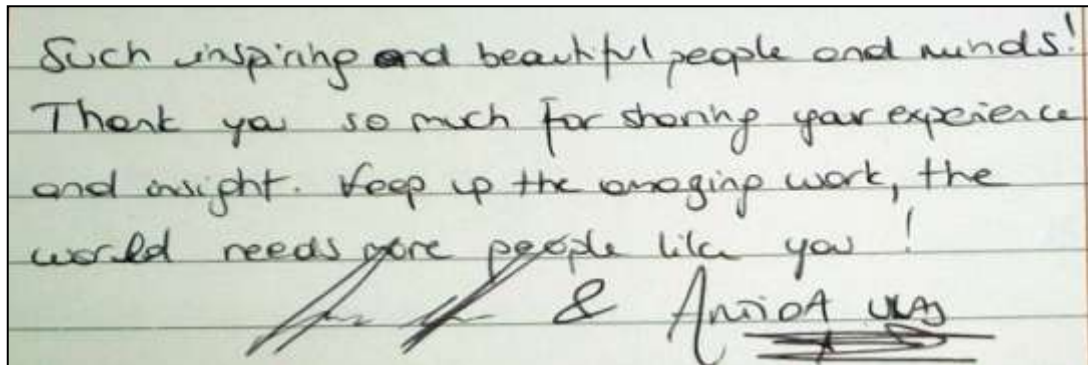 Such inspiring and beautiful people and minds!
Thank you so much for sharing your experience
and insight. Keep up the amazing work, the
world needs more people like you!
&